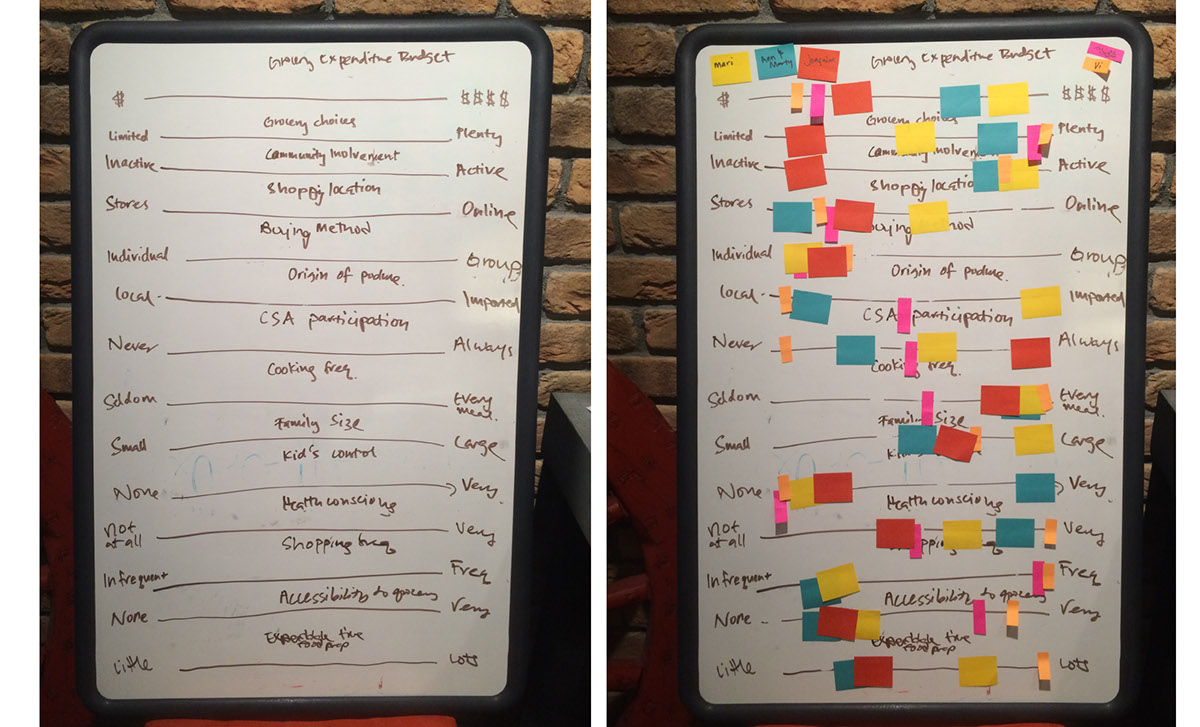 Grocery Expenditure Budget
$ $$$$
Grocery choices
Limited Plenty
Community Involvement
Inactive Active
Shoppig location
Stores Online
Buying Method
Individual Group
Origin of produce
local Imported
CSA participation
Never Always
Cooking freq.
Seldom Every meal.
Family Size
Small Large
Kid's control
None Very
Health conscious
not at all Very
Shopping freq
Infrequent Freq
Accessibility to grocery
None Very
Expendable time
food prep
Little Lots
Mari
Ann & Marty
Joaquin
Vi
Grocery Expenditure Budget
$ $$$$
Grocery choices
Limited Plenty
Community Involvement
Inactive Active
Shoppig location
Stores Online
Buying Method
Individual Group
Origin of produce
local Imported
CSA participation
Never Always
Cooking freq.
Seldom Every meal.
Family Size
Small Large
None Very
Health conscious
not at all Very
Infrequent Freq
Accessibility to grocery
None Very
Expendable time
food prep
Little Lots